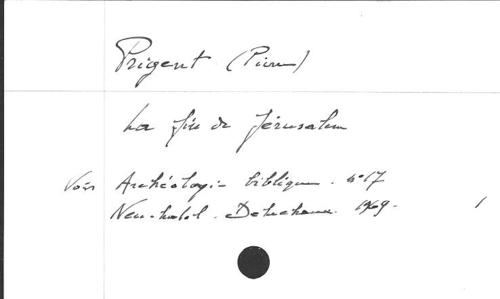 Prigent (Pierre)
La fin de Jérusalem
Voir Archéologie biblique. n°17
Neuchatel. Delachaux. 1969.
1